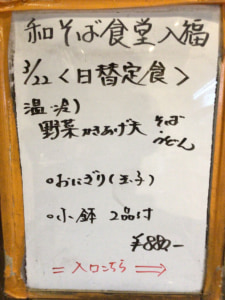 和そば食堂入福
3/22 <日替定食>
温・冷)
野菜かきあげ天 そば
・うどん
○おにぎり(玉子)
○小鉢 2品付
¥880-
=入口こちら⇒